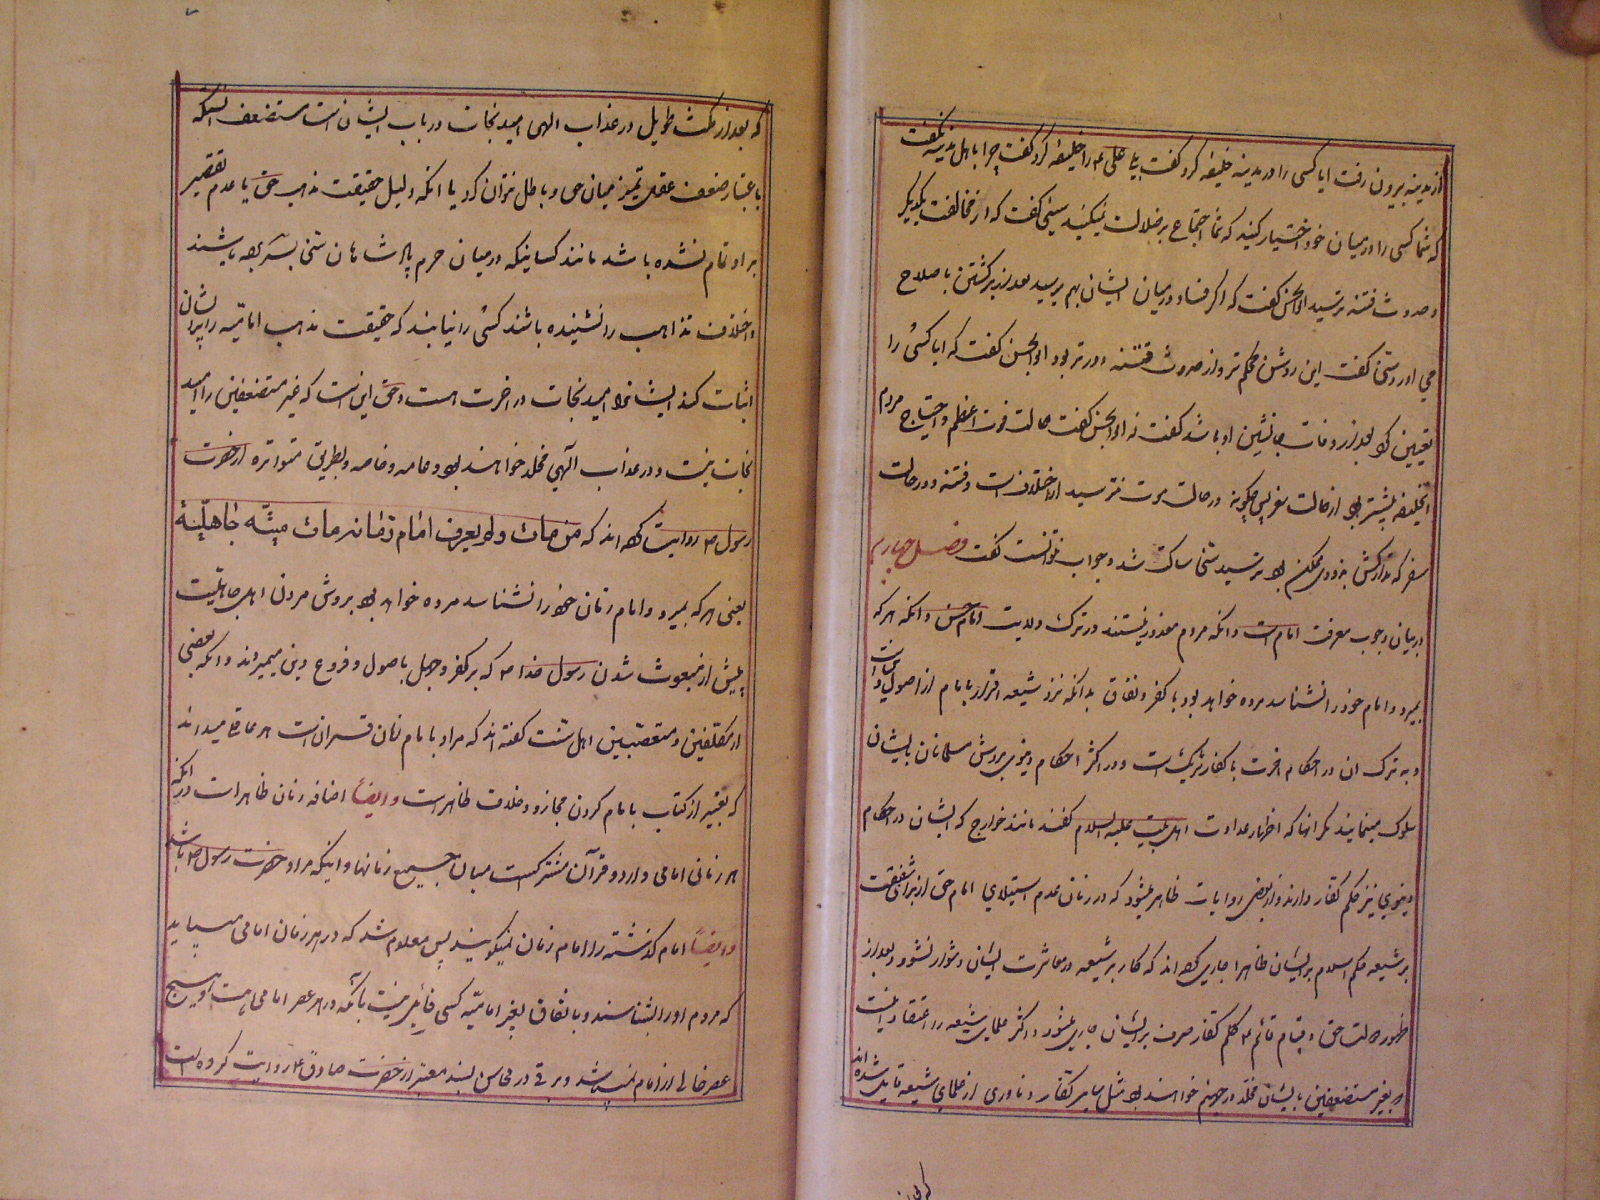 از مدینه بیرون رفت ایا کسی را در مدینه خلیفه کرد کفت بلی علی ع را خلیفه کرد کفت چرا باهل مدینه نکفت
که شما کسی را در میان خود اختیار کنید که شما اجتماع بر ضلالت نمیکنید سنی کفت که از مخالفت یکدیکر
و حدوث فتنه ترسید ابو الحسن کفت که اکر فساد در میان ایشان بهم میرسید بعد از برکشتن باصلاح
می اورد سنی کفت این روش محکم تر و از حدوث فتنه دورتر بود ابو الحسن کفت که ایا کسی را
تعیین کرد بعد از وفات جانشین او باشد کفت نه ابو الحسن کفت حالت فوت اعظم و احتیاج مردم
بخلیفه بیشتر بود از حالت سفر پس چکونه در حالت موت نترسید از اختلاف امت و فتنه و در حالت
سفر که تدارکش بزودی ممکن بود ترسید سنی ساکت شد و جواب نتوانست کفت فصل چهارم
در بیان وجوب معرفت امام است و انکه مردم معذور نیستند در ترک ولایت امام حسن و انکه هر که
بمیرد و امام خود را نشناسد مرده خواهد بود با کفر و نفاق بدانکه نزد شیعه اقرار بامام از اصول دین است
و به ترک ان در احکام اخرت با کفار شریک است و در اکثر احکام دنیوی بروش مسلمانان بایشان
سلوک مینمایند مکر انها که اظهار عداوت اهل بیت علیه السلام کنند مانند خوارج که ایشان در احکام
دنیوی نیز حکم کفار دارند و از بعضی روایات ظاهر میشود که در زمان عدم استیلای امام حق از برای شفقت
بر شیعه حکم اسلام بر ایشان ظاهرا جاری کرده اند که کار بر شیعه در معاشرت ایشان دشوار نشود و بعد از
ظهور دولت حق و قیام قائم ع حکم کفار صرف بر ایشان جاری میشود و اکثر علمای شیعه را اعتقاد اینست
که بغیر مستضعفین ایشان مخلد در جهنم خواهند بود مثل سایر کفار و نادری از علمای شیعه قایل شده اند
که بعد از مکث طویل در عذاب الهی امید نجات در باب ایشان است مستضعف انستکه
باعتبار ضعف عقل تمیز میان حق و باطل نتوان کرد یا انکه دلیل حقیقت مذهب حق با عدم تقصیر
بر او تمام نشده باشد مانند کسانیکه در میان حرم پادشاهان سنی بسر برده باشند
و اختلاف مذاهب را نشنیده باشند کسی را نیابند که حقیقت مذهب امامیه را برایشان
اثبات کند ایشانرا امید نجات در اخرت هست و حق این است که غیر مستضعفین را امید
نجات نیست و در عذاب الهی مخلد خواهند بود و عامه و خاصه و بطریق متواتره از حضرت
رسول ص روایت کرده اند که من مات ولم یعرف امام زمانه مات میتة جاهلیة
یعنی هر که بمیرد و امام زمان خود را نشناسد مرده خواهد بود بروش مردن اهل جاهلیت
پیش از مبعوث شدن رسول خدا ص که بر کفر و جهل باصول و فروع دین میمیرند و انکه بعضی
از مکلفین و متعصبین اهل سنت کفته اند که مراد بامام زمان قران است هر عاقل میداند
که تعبیر از کتاب بامام کردن مجاز و خلاف ظاهر است و ایضا اضافه زمان ظاهر است در انکه
هر زمانی امامی دارد و قرآن مشترکست میان جمیع زمانها و اینکه مراد حضرت رسول ص باشد
و ایضا امام کذشته را امام زمان نمیکویند پس معلوم شد که در هر زمان امامی میباید
که مردم او را بشناسند و باتفاق بغیر امامیه کسی قایل نیست بانکه در هر عصر امامی هست و هیچ
عصر خالی از امام نمیباشد و برقی در محاسن بسند معتبر از حضرت صادق ع روایت کرده است